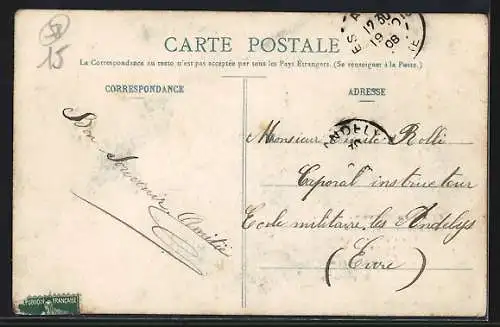 15
CARTE POSTALE
La Correspondance au recto n'est pas acceptée par tous les Pays Étrangers. (Se renseigner à la Poste.)
CORRESPONDANCE
ADRESSE
Bon Souvenir
Amitié
Monsieur Rolli
Caporal instructeur
Ecole militaire, les Andelys
(Eure)
17 30
19
08
ANDELY
FRANÇAISE